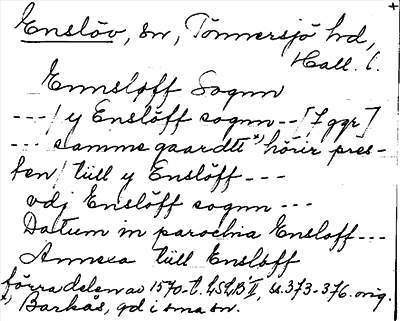 Enslöv, sn, Tönnersjö hd,
Hall. l.
Ennsloff Sognn
---/ y Enslöff sognn -- [7 ggr]
--- samme gaardtt x) hörir pres-
ten/ tiill y Enslöff ---
vdj Enslöff sognn ---
Datum in parochia Ensloff ---
Annexa tiill Ensloff
förra delen av 1570-t. LSLB II, s. 373-376. orig.
x) Barkås, gd i sma sn.